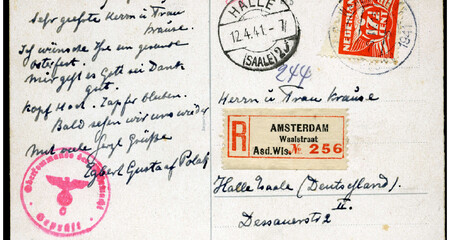 Sehr geehrte Herrn u Frau
Krause.
Ich wünsche Ihe ein gesunde
osterfest.
Mir geht es Gott sei Dank
gut.
Kopf Hoch. Tapfer bleiben.
Bald sehen wir uns wieder
Mit viele herzl Grüße
Egbert Gustaaf Polak
Oberkommando der Wehrmacht
Geprüft
HALLE
12.4.41.-7
(SAALE) 2
NEDERLAND
17½
CENT
1941
244
Herrn u Frau Krause
R
AMSTERDAM
Waalstraat
Asd.Wls. № 256
Halle Saale (Deutschland).
II.
Dessauerstr 2